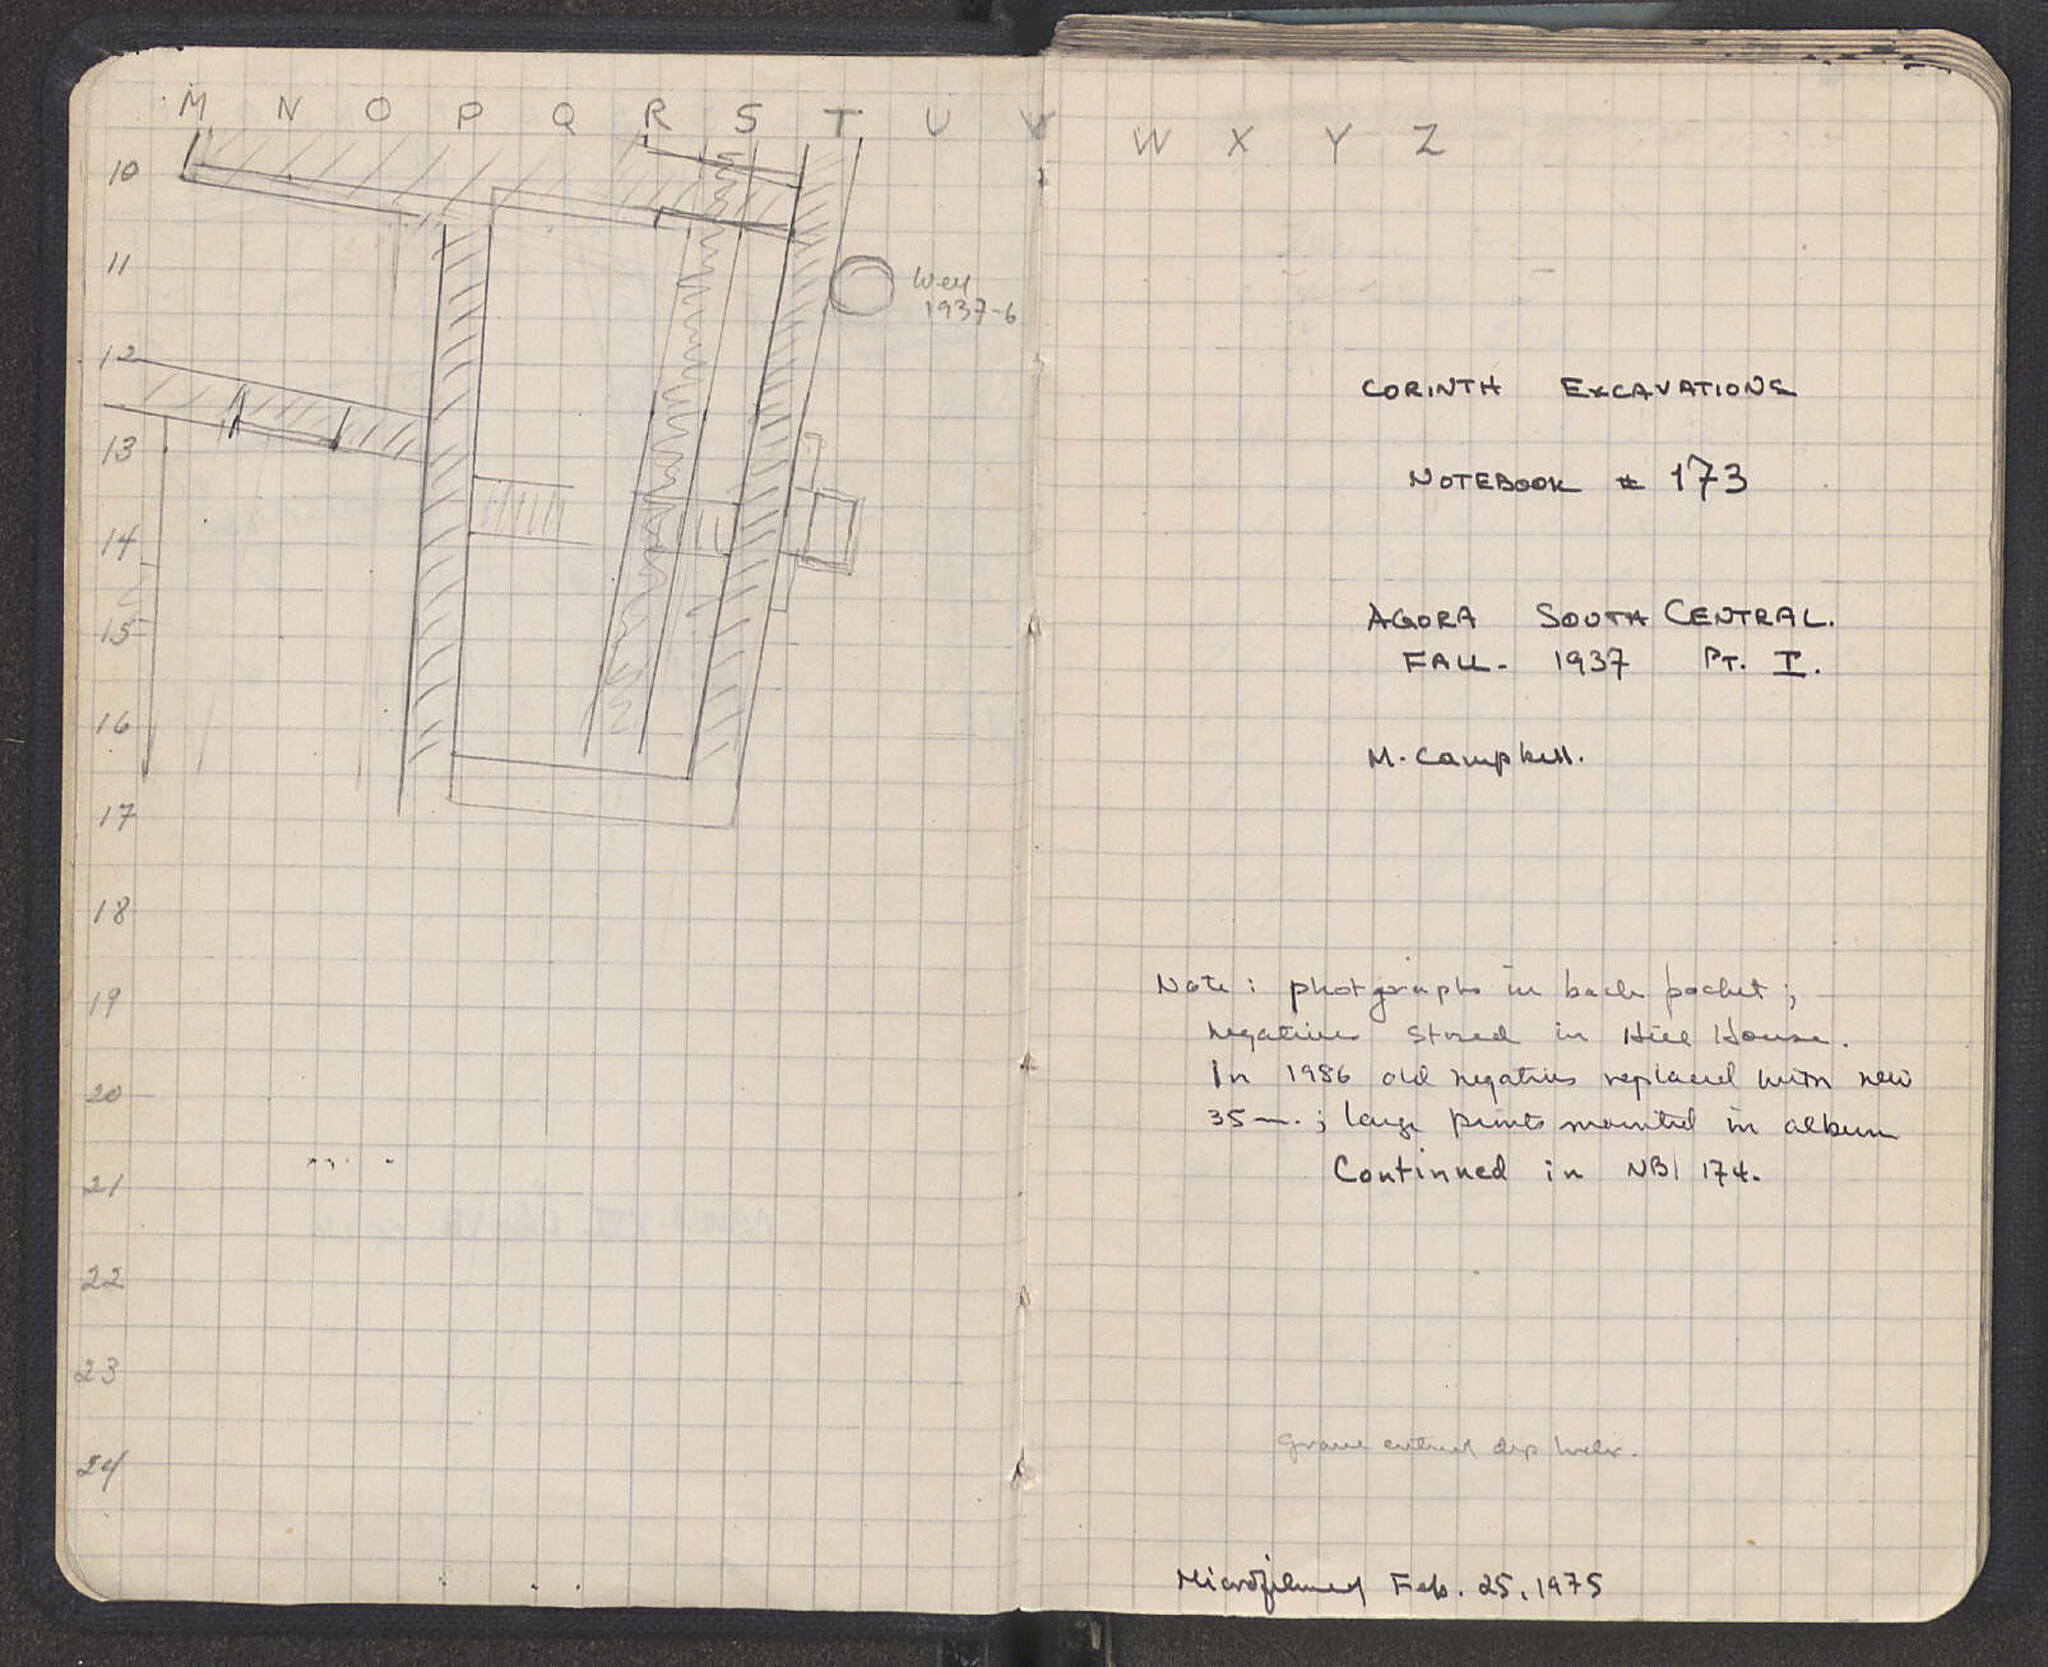 M N O P Q R S T U V W X Y Z
10
11
Well
1937-6
12
13
14
15
16
17
18
19
20
21
22
23
24
CORINTH EXCAVATIONS
NOTEBOOK # 173
AGORA SOUTH CENTRAL.
FALL. 1937 PT. I.
M. Campbell.
Note: photgraphs in back pocket;
negatives stored in Hill House.
In 1986 old negatives replaced with new
35 mm.; large prints mounted in album
Continued in NB 174.
Microfilmed Feb. 25, 1975